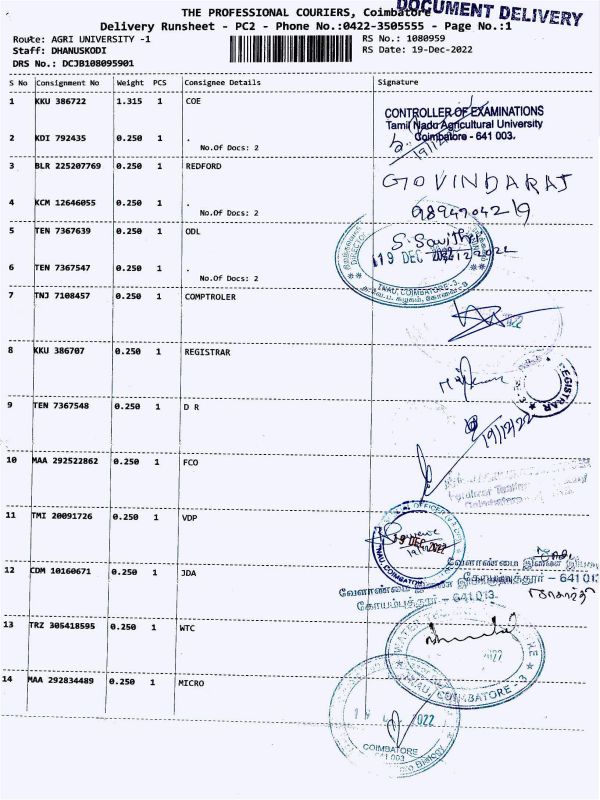 DOCUMENT DELIVERY
THE PROFESSIONAL COURIERS, Coimbatore
Delivery Runsheet - PC2 - Phone No.:0422-3505555 - Page No.:1
Route: AGRI UNIVERSITY -1
RS No.: 1080959
Staff: DHANUSKODI
RS Date: 19-Dec-2022
DRS No.: DCJB108095901
S No Consignment No Weight PCS Consignee Details Signature
1 KKU 386722 1.315 1 COE
CONTROLLER OF EXAMINATIONS
Tamil Nadu Agricultural University
Coimbatore - 641 003.
19/12/22
2 KDI 792435 0.250 1 .
No.Of Docs: 2
3 BLR 225207769 0.250 1 REDFORD
GOVINDARAJ
4 KCM 12646055 0.250 1 .
No.Of Docs: 2
9894904219
5 TEN 7367639 0.250 1 ODL
S. Savithri
19 DEC 2022
TNAU, COIMBATORE-3.
6 TEN 7367547 0.250 1 .
No.Of Docs: 2
7 TNJ 7108457 0.250 1 COMPTROLER
2022
8 KKU 386707 0.250 1 REGISTRAR
REGISTRAR
9 TEN 7367548 0.250 1 D R
19/12/22
10 MAA 292522862 0.250 1 FCO
11 TMI 20091726 0.250 1 VDP
19 DEC 2022
TNAU, COIMBATORE
12 CDM 10160671 0.250 1 JDA
வேளாண்மை
கோயமுத்தூர் - 641 013.
வேளாண்மை
கோயமுத்தூர் - 641 013.
13 TRZ 305418595 0.250 1 WTC
WATER
2022
TNAU, COIMBATORE - 3
14 MAA 292834489 0.250 1 MICRO
2022
COIMBATORE
641 003